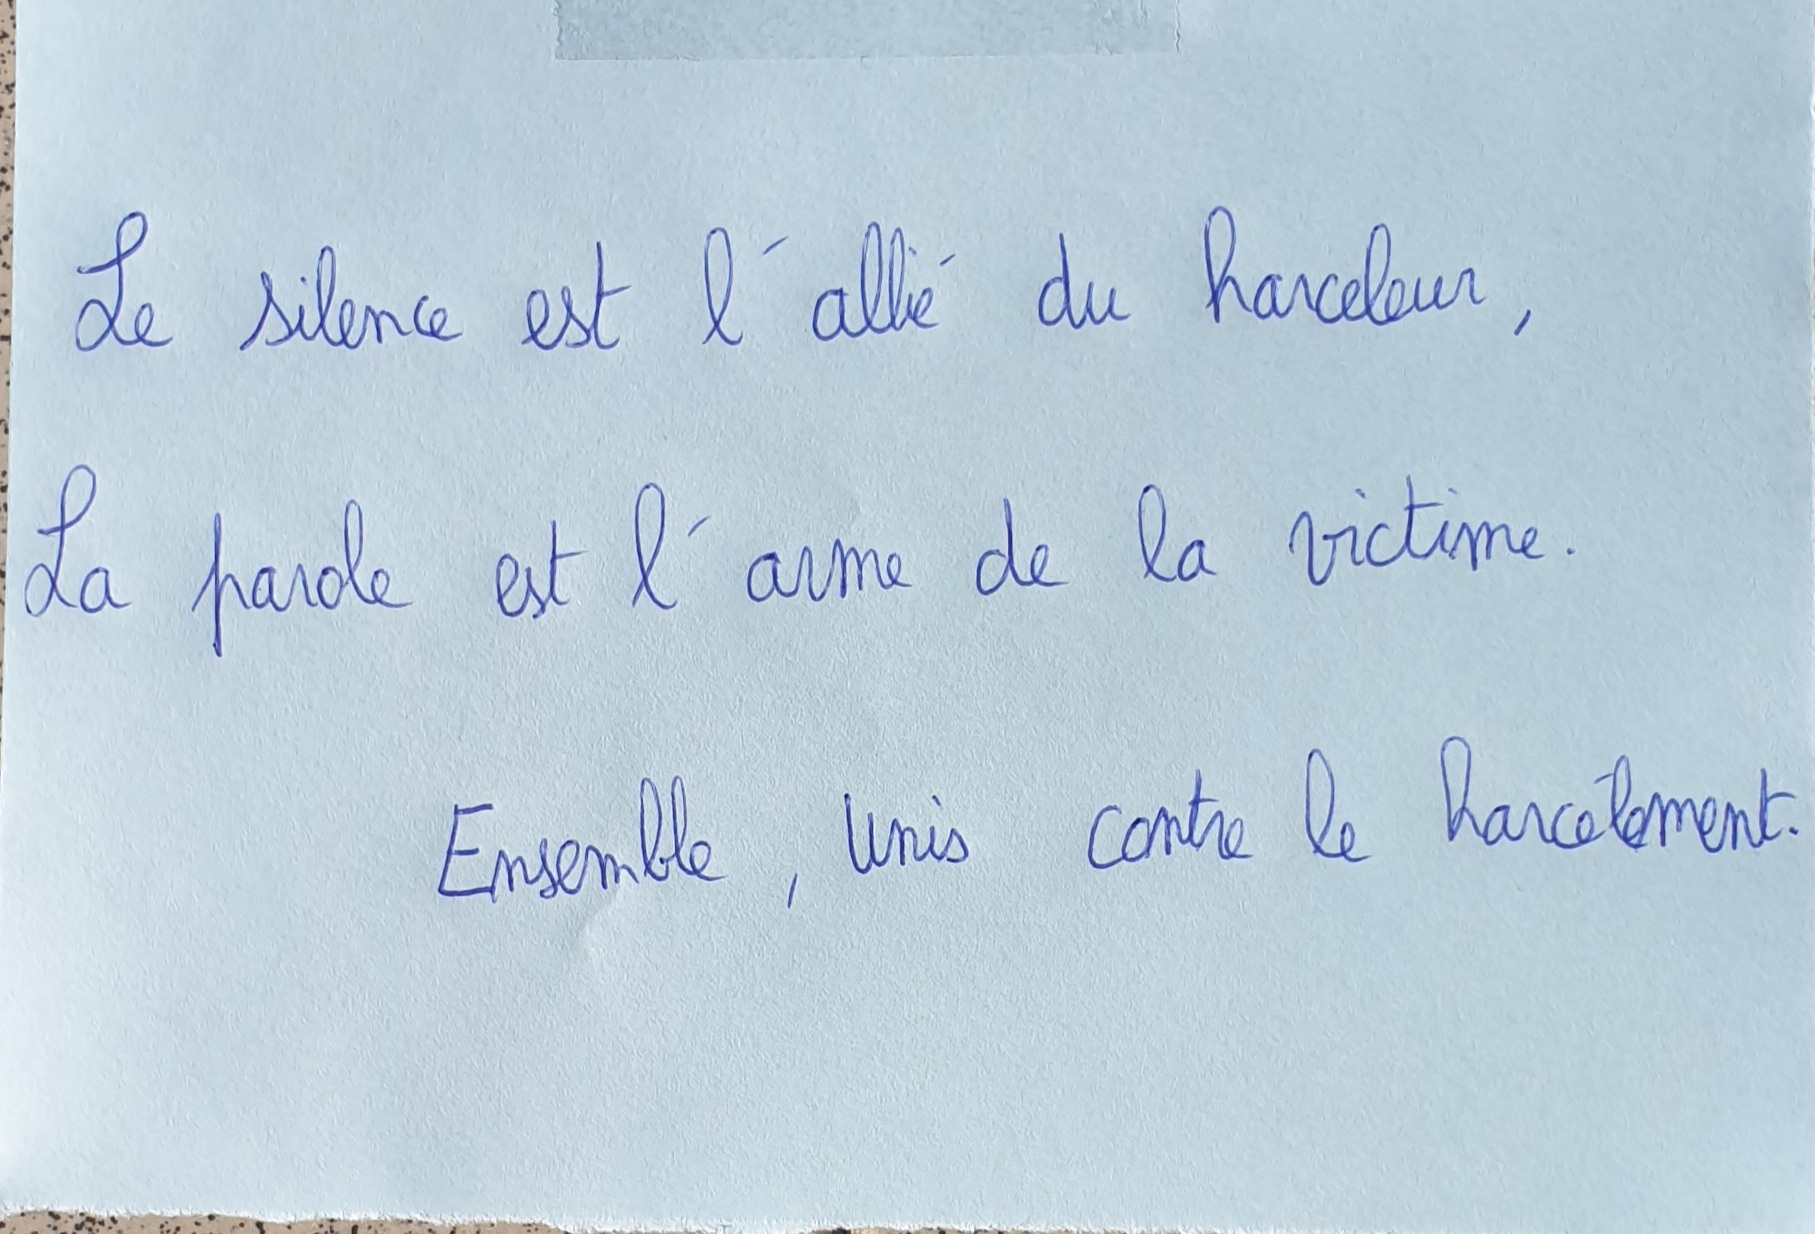 Le silence est l'allié du harceleur,
La parole est l'arme de la victime.
Ensemble, Unis contre le harcèlement.